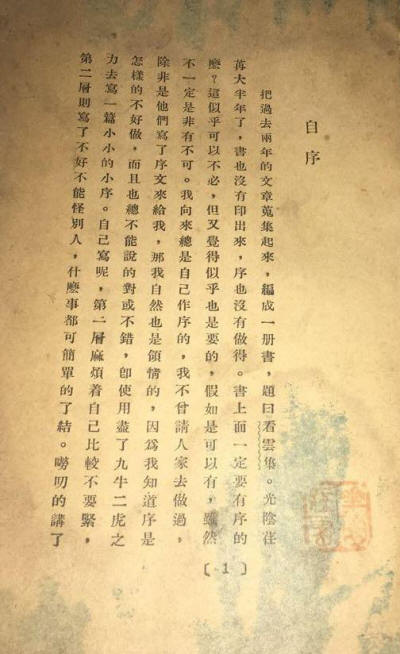 自序
把過去兩年的文章蒐集起來，編成一册書，題曰看雲集。光陰荏
苒大半年了，書也沒有印出來，序也沒有做得。書上面一定要有序的
麽？這似乎可以不必，但又覺得似乎也是要的，假如是可以有，雖然
不一定是非有不可。我向來總是自己作序的，我不曾請人家去做過，
除非是他們寫了序文來給我，那我自然也是領情的，因爲我知道序是
怎樣的不好做，而且也總不能說的對或不錯，卽使用盡了九牛二虎之
力去寫一篇小小的小序。自己寫呢，第一層麻煩着自己比較不要緊，
第二層則寫了不好不能怪別人，什麽事都可簡單的了結。嘮叨的講了
〔1〕